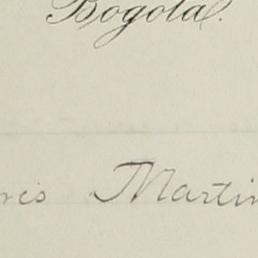 Bogotá.
Martin